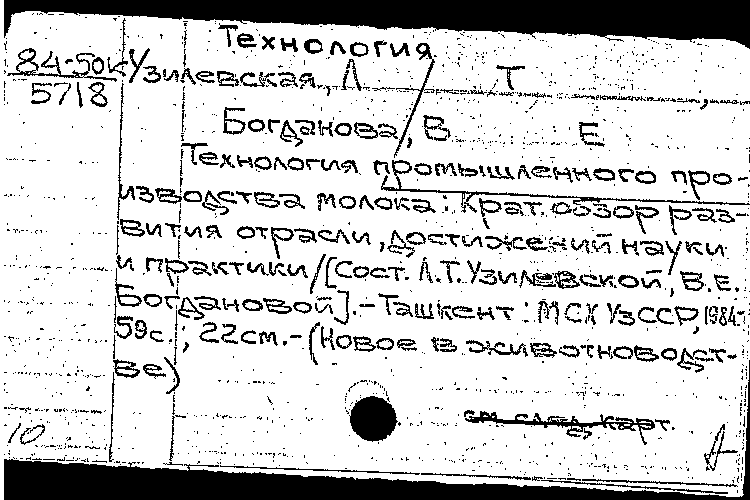 Технология
84-50к Узилевская, Л Т
5718
Богданова, В Е
Технология промышленного про-
изводства молока: Крат. обзор раз-
вития отрасли, достижений науки
и практики/[Сост. Л.Т. Узилевской, В.Е.
Богдановой].-Ташкент: МСХ УзССР, 1984.-
59с.; 22см.-(Новое в животноводст-
ве)
см. след. карт.
10
А